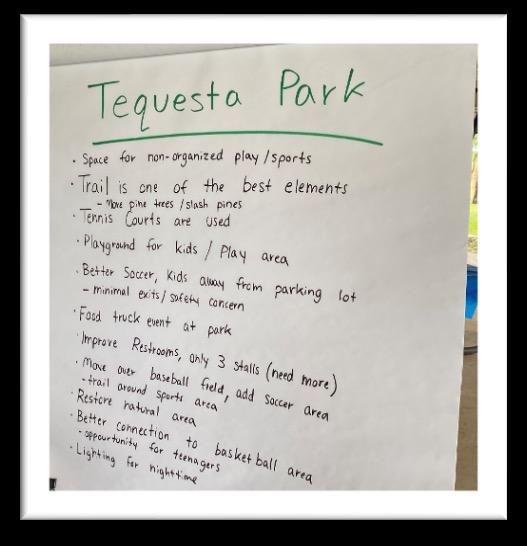 Tequesta Park
· Space for non-organized play/sports
· Trail is one of the best elements
- More pine trees/slash pines
· Tennis Courts are used
· Playground for kids / Play area
· Better Soccer, Kids away from parking lot
- minimal exits/safety concern
· Food truck event at park
· Improve Restrooms, only 3 stalls (need more)
· Move over baseball field, add soccer area
- trail around sports area
· Restore natural area
· Better connection to basketball area
- oppourtunity for teenagers
· Lighting for nighttime